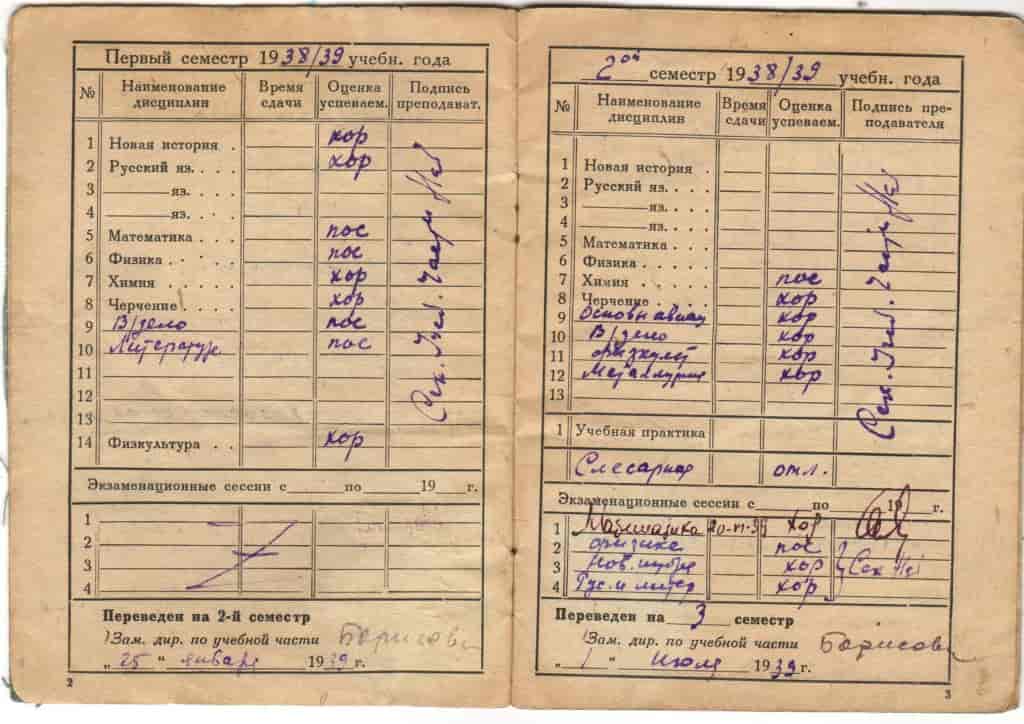 Первый семестр 1938/39 учебн. года
№ Наименование дисциплин Время сдачи Оценка успеваем. Подпись преподават.
1 Новая история . хор
2 Русский яз. . . . хор
3 яз. . . .
4 яз. . . .
5 Математика . . . пос
6 Физика . . . . пос
7 Химия . . . . хор
8 Черчение . . . хор
9 В/дело пос
10 Литература пос
11
12
13
14 Физкультура . . хор
Сек. Учеб. Части
Экзаменационные сессии с по 19 г.
1
2
3
4
Переведен на 2-й семестр
Зам. дир. по учебной части Борисова
„25“ января 1939 г.
2
2ой семестр 1938/39 учебн. года
№ Наименование дисциплин Время сдачи Оценка успеваем. Подпись преподавателя
1 Новая история .
2 Русский яз. . . .
3 яз. . . .
4 яз. . . .
5 Математика . . .
6 Физика . . . .
7 Химия . . . . пос
8 Черчение . . . хор
9 Основы авиац хор
10 В/дело хор
11 Физкульт хор
12 Металлургия хор
13
Сек. Учеб. Части
1 Учебная практика
Слесарная отл.
Экзаменационные сессии с по 19 г.
1 Математика 20-VI-39 хор
2 физика пос
3 Нов. история хор Сек
4 Рус. и литер хор
Переведен на 3 семестр
Зам. дир. по учебной части Борисова
„1“ июля 1939 г.
3